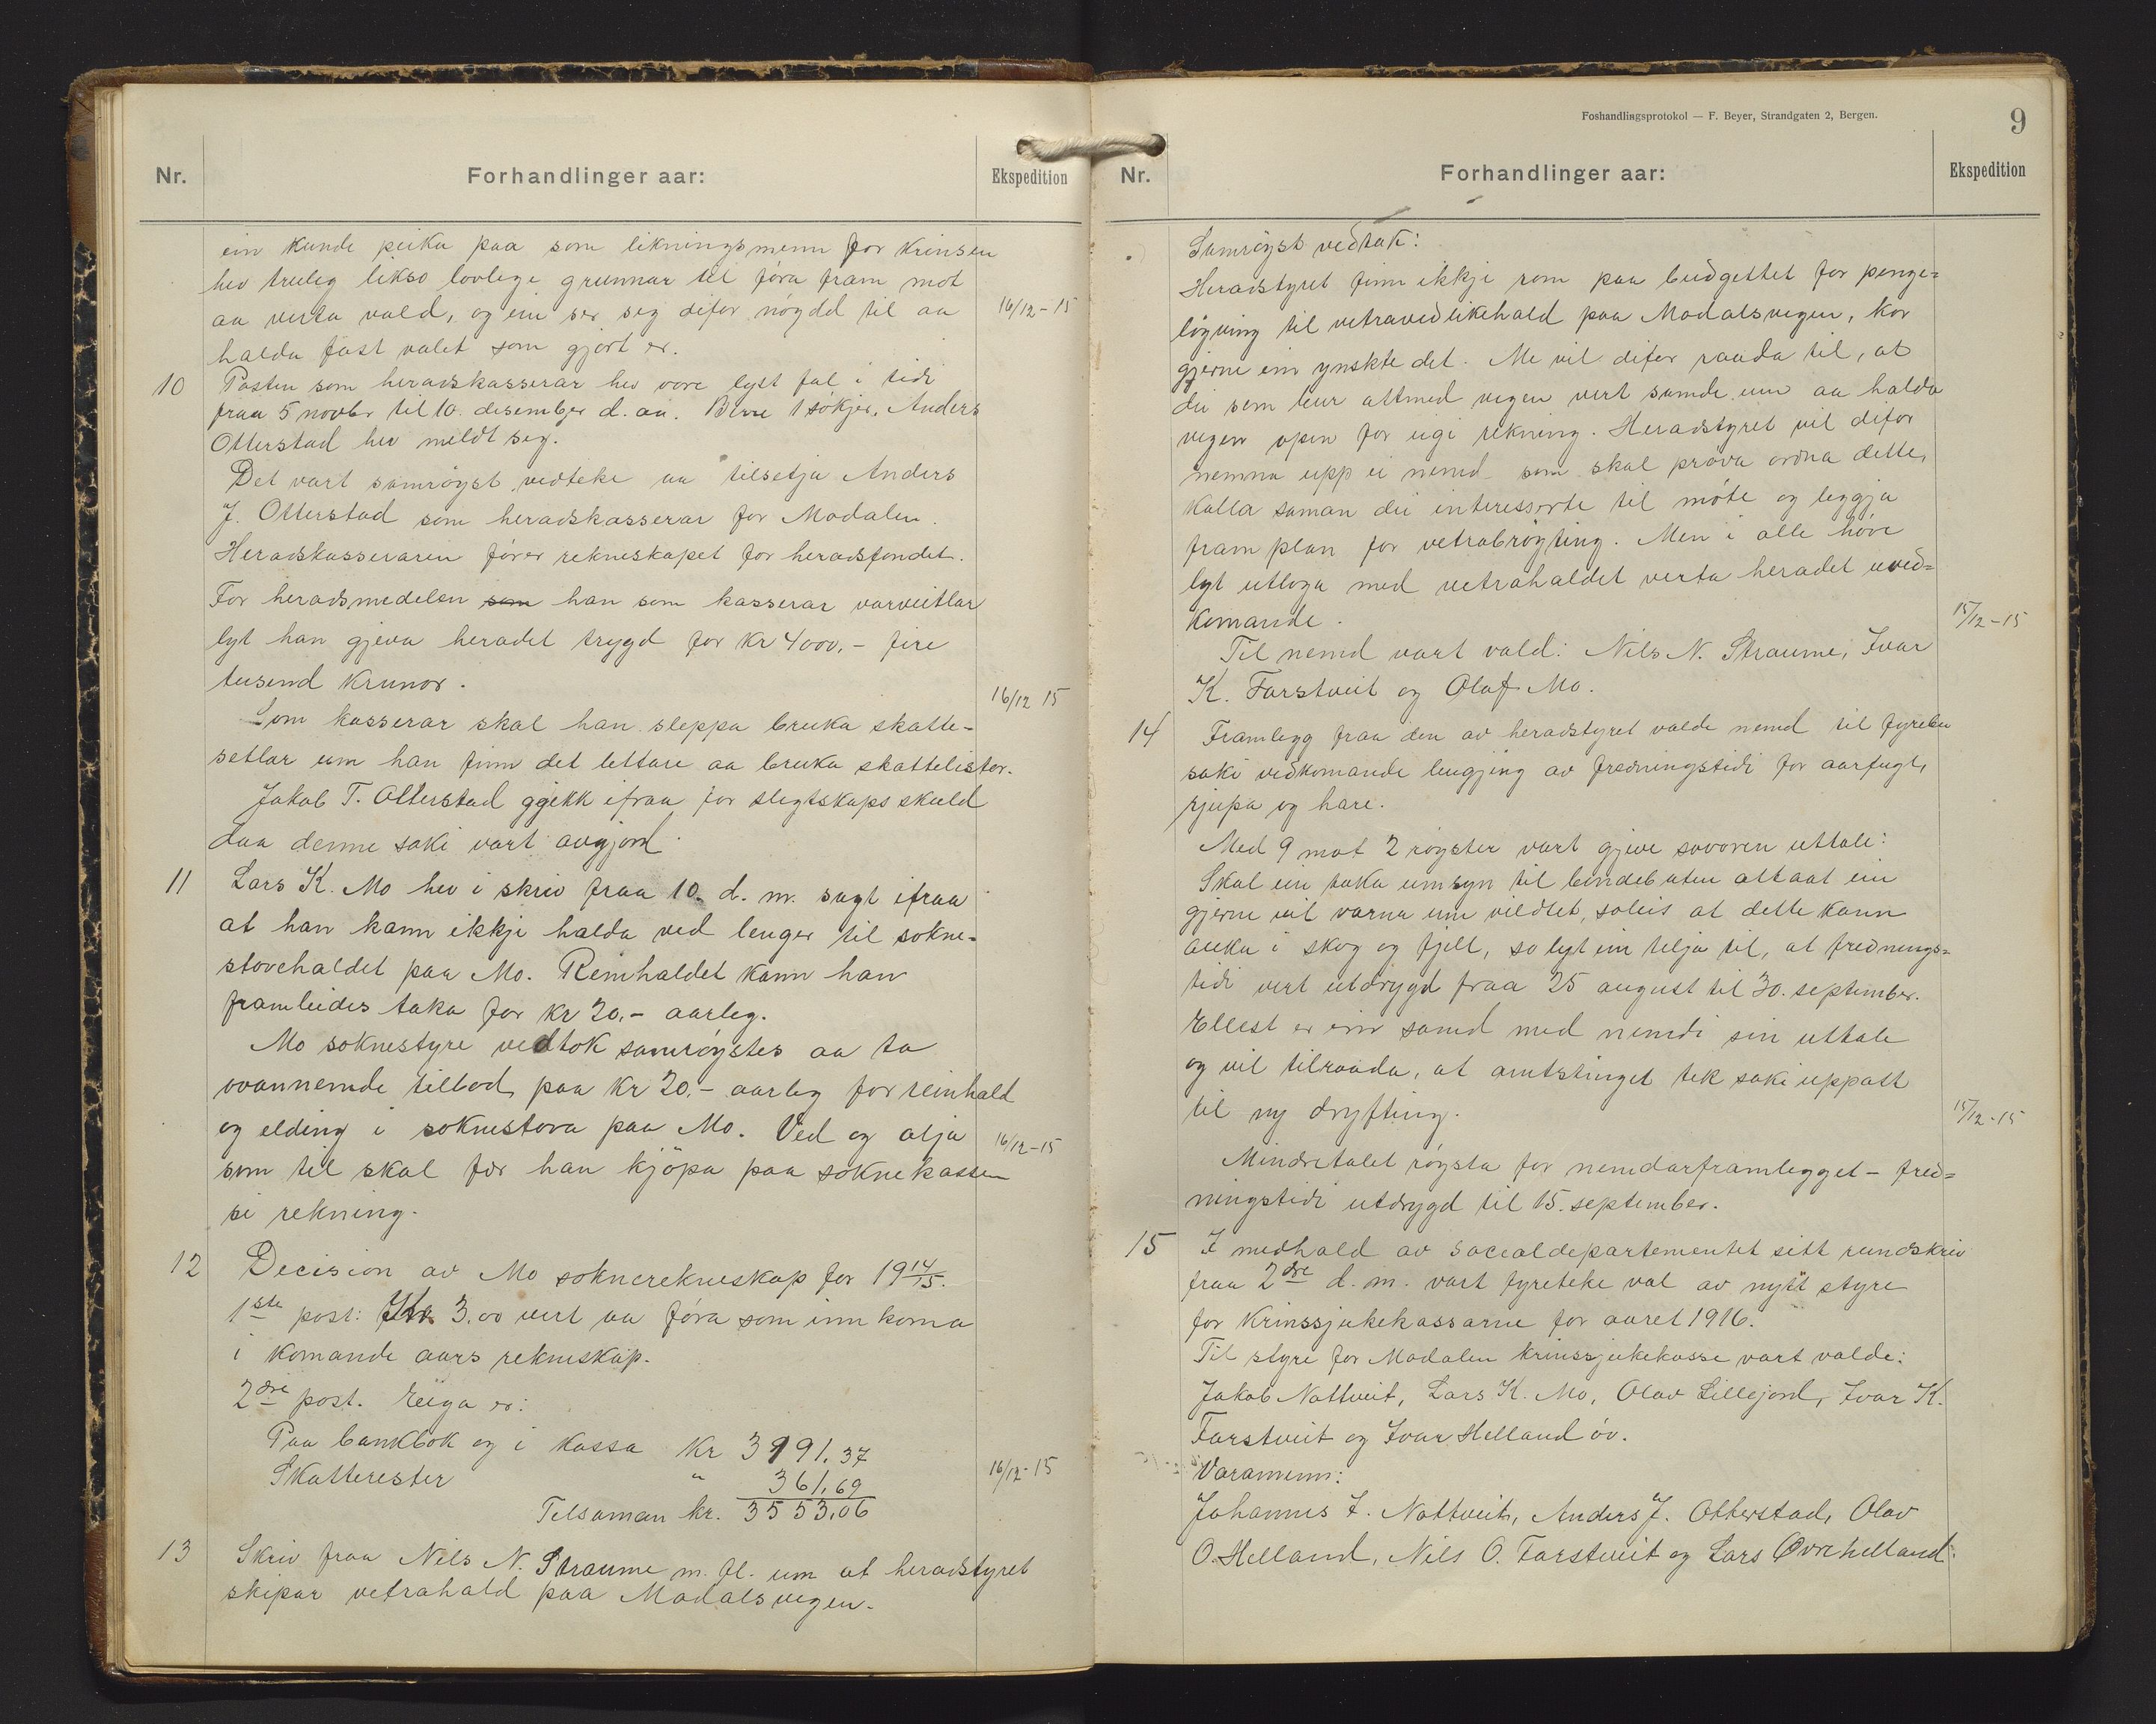 Nr.
Forhandlinger aar:
Ekspedition
ein kunde peika paa som likningsmenn for krinsen
hev truleg likso lovlege grunnar til föra fram mot
aa verta vald, og ein ser seg difor nøgdd til aa
16/12-15
halda fast valet som gjort er.
10 Posten som heradskasserar hev vore lyst fal i tidi
fraa 5 novbr til 10. desember d. aa. Berre 1 sökjer, Anders
Otterstad hev meldt seg.
Det vart samröyst vedteke aa tilsetja Anders
J. Otterstad som heradskasserar for Modalen.
Heradskasseraren förer rekneskapet for heradsfondet.
For heradsmedelen som han som kasserar varveitlar
lyt han gjeva heradet trygd for kr 4000,- fire
tusend krunor.
16/12 15
Som kasserar skal han sleppa bruka skatte-
setlar um han finn det lettare aa bruka skattelister.
Jakob T. Otterstad ggjekk ifraa for slegtskaps skuld
daa denne saki vart avgjord.
11 Lars K. Mo hev i skriv fraa 10. d. m. sagt ifraa
at han kann ikkje halda ved lenger til sokne-
stovehaldet paa Mo. Reinhaldet kann han
framleides taka for kr 20,- aarleg.
Mo soknestyre vedtok samröystes aa ta
ovannemde tilbod paa kr 20,- aarleg for reinhald
og elding i soknestova paa Mo. Ved og olja
16/12-15
som til skal fær han kjöpa paa soknekassen
si rekning.
12 Decision av Mo soknerekneskap for 19 14/15.
1ste post: Kr. 3.00 vert aa föra som inn koma
i komande aars rekneskap.
2dre post. Eiga er:
Paa bankbok og i kassa kr 3191.37
Skatterester " 361,69
16/12-15
Tilsaman kr. 3553,06
13 Skriv fraa Nils N. Straume m. fl. um at heradstyret
skipar vetrahald paa Modalsvegen.
Foshandlingsprotokol — F. Beyer, Strandgaten 2, Bergen.
9
Nr.
Forhandlinger aar:
Ekspedition
Samröyst vedtak:
Heradstyret finn ikkje rom paa budgettet for penge=
löyving til vetravedlikehald paa Modalsvegen, kor
gjerne ein ynskte det. Me vil difor raada til, at
dei som bur attmed vegen vert samde um aa halda
vegen open for eigi rekning. Heradstyret vil difor
nemna upp ei nemd som skal pröva ordna dette,
kalla saman dei interesserte til möte og leggja
fram plan for vetrabröyting. Men i alle höve
lyt utloga med vetrahaldet verta heradet uved=
komande.
15/12-15
Til nemd vart vald: Nils N. Straume, Ivar
K. Farstveit og Olaf Mo.
14 Framlegg fraa den av heradstyret valde nemd til fyrebu
saki vedkomande lengjing av fredningstidi for aarfugl,
rjupa og hare.
Med 9 mot 2 röyster vart gjeve sovoren uttale:
Skal ein taka umsyn til bendebaten attaat ein
gjerne vil varna um vildtet, soleis at dette kann
auka i skog og fjell, so lyt ein telja til, at frednings=
tidi vert utdrygd fraa 25 august til 30. september.
Ellest er ein samd med nemdi sin uttale
og vil tilraada, at amtstinget tek saki uppatt
til ny dryfting.
15/12-15
Mindretalet röysta for nemdarframlegget - fred=
ningstidi utdrygd til 15. september.
15 I medhald av socialdepartementet sitt rundskriv
fraa 2dre d. m. vart fyreteke val av nytt styre
for krinssjukekassarne for aaret 1916.
Til styre for Modalen krinssjukekasse vart valde:
Jakob Nottveit, Lars K. Mo, Olav Lillejord, Ivar K.
Farstveit og Ivar Helland öv.
Varamenn:
Johannes I. Nottveit, Anders J. Otterstad, Olav
O. Helland, Nils O. Farstveit og Lars Øvrehelland.